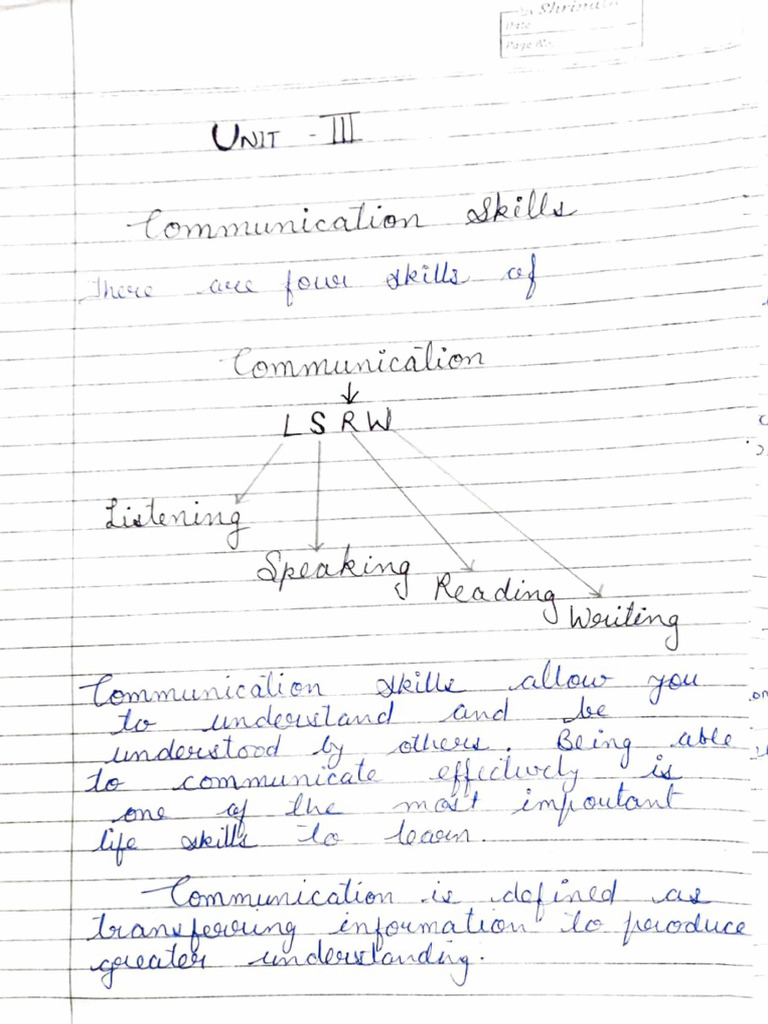 Shrinath
Date
Page No.
UNIT - III
Communication Skills
There are four skills of
Communication
L S R W
Listening
Speaking
Reading
Writing
Communication skills allow you
to understand and be
understood by others. Being able
to communicate effectively is
one of the most important
life skills to learn.
Communication is defined as
transferring information to produce
greater understanding.